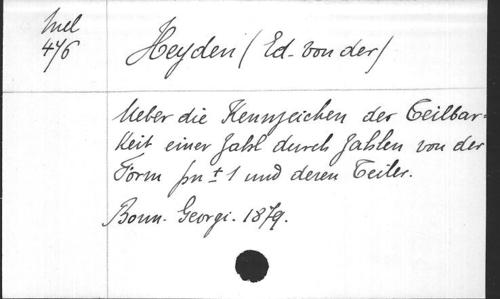 Mel
476
Heyden (Ed. von der)
Ueber die Kennzeichen der Teilbar-
keit einer Zahl durch Zahlen von der
Form pn ± 1 und deren Teiler.
Bonn. Georgi. 1879.